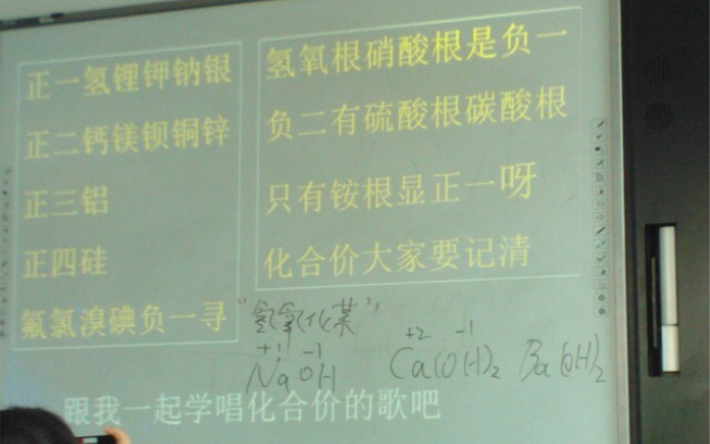 正一氢锂钾钠银
正二钙镁钡铜锌
正三铝
正四硅
氟氯溴碘负一寻
氢氧根硝酸根是负一
负二有硫酸根碳酸根
只有铵根显正一呀
化合价大家要记清
"氢氧化某"
+1 -1
NaOH
+2 -1
Ca(OH)₂
Ba(OH)₂
跟我一起学唱化合价的歌吧